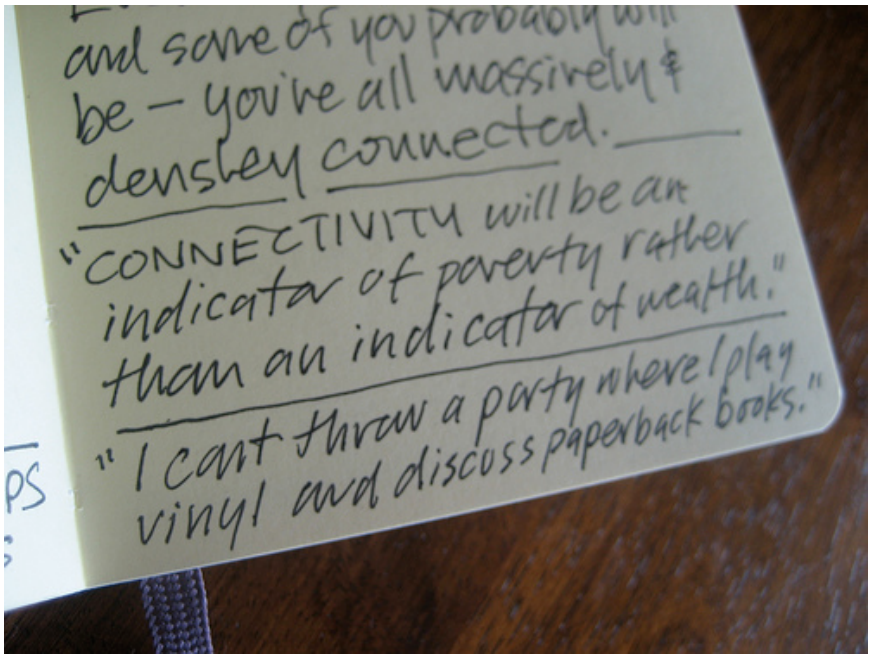 and some of you probably will
be – you're all massively &
densley connected.
"CONNECTIVITY will be an
indicator of poverty rather
than an indicator of wealth."
"I can't throw a party where I play
vinyl and discuss paperback books."
PS